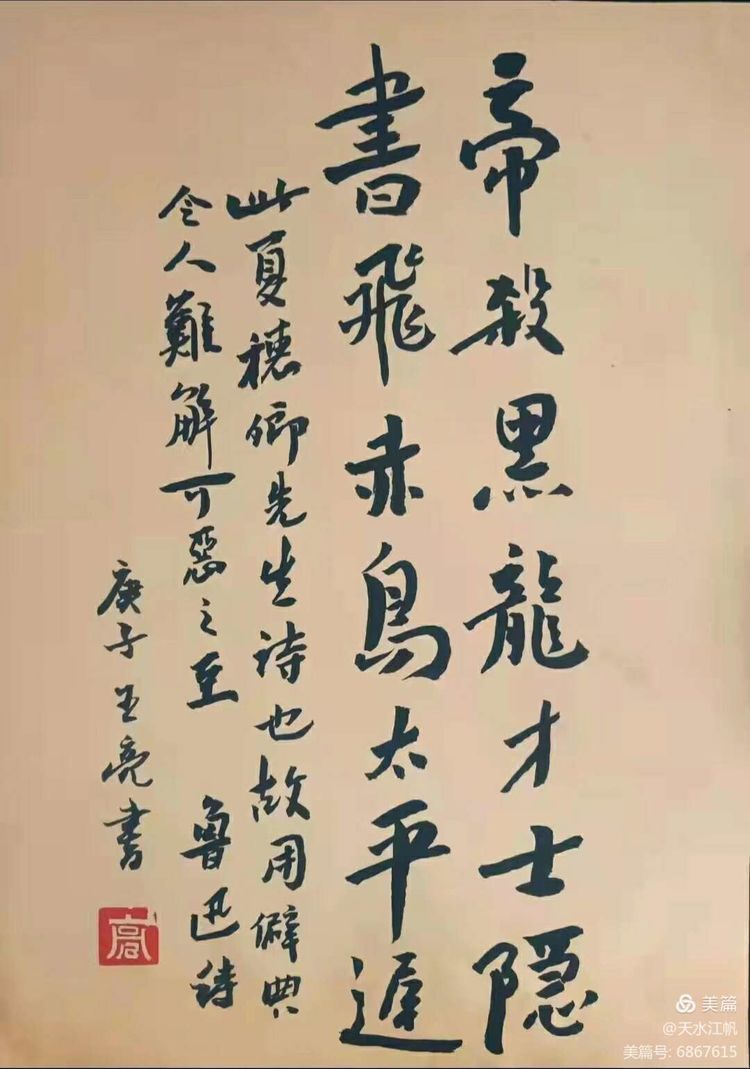 帝殺黑龍才士隐
書飛赤鳥太平遅
此夏穗卿先生诗也故用僻典
令人難解可惡之至 魯迅诗
庚子王亮書
美篇
@天水江帆
美篇号: 6867615